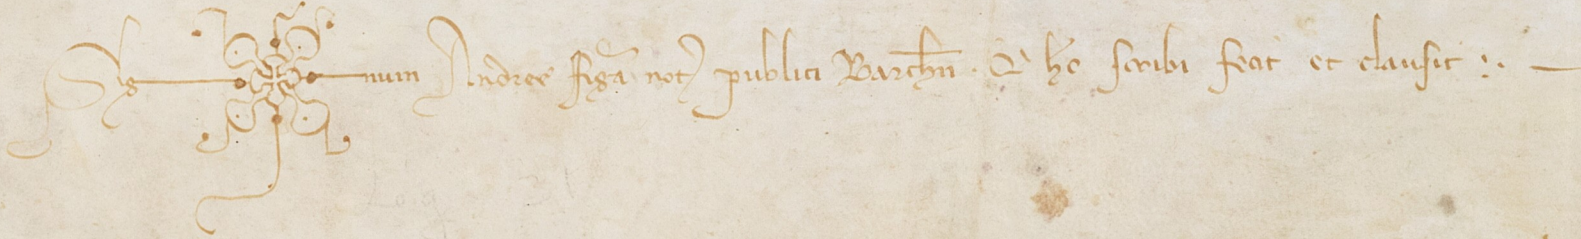 Sig num Andree Figa not publici Barchn. Q hc scribi fecit et clausit :.